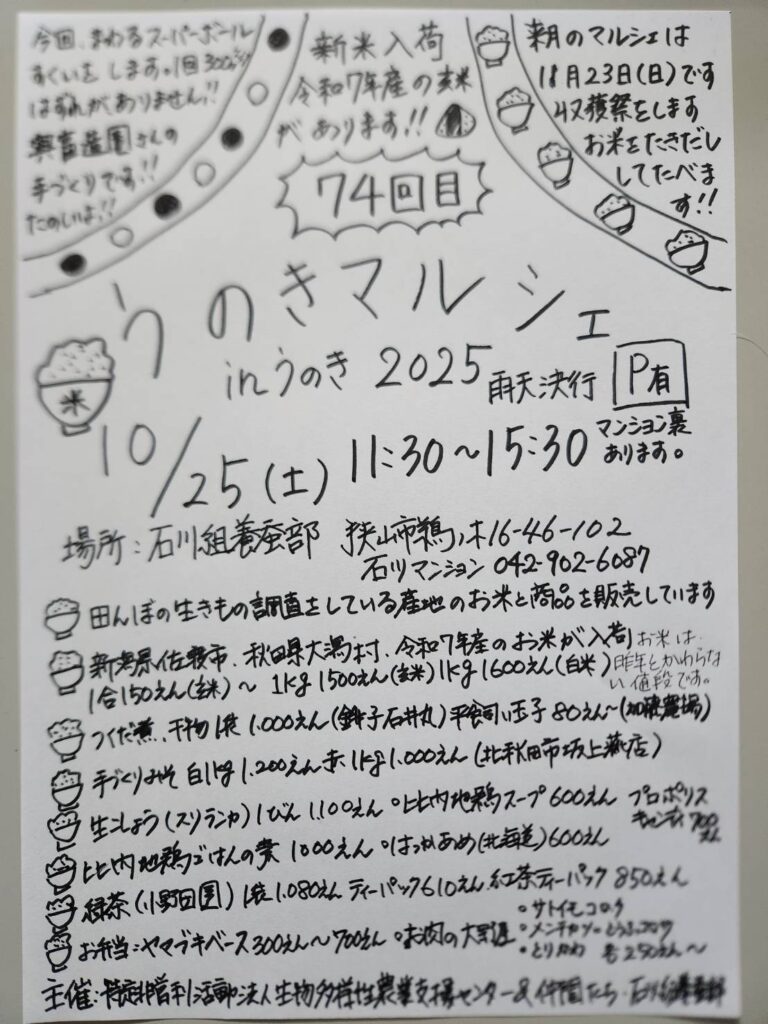 今回、まわるスーパーボール
すくいをします。1回300えん
はずれがありません!!
興畜造園さんの
手づくりです!!
たのしいよ!!
新米入荷
令和7年産の玄米
があります!!
74回目
来月のマルシェは
18月23日(日)です
収獲祭をします
お米をたきだし
してたべま
す!!
うのきマルシェ
inうのき 2025 雨天決行 P有
米
マンション裏
あります。
10/25(土) 11:30〜15:30
場所:石川組養蚕部 狭山市鵜ノ木16-46-102
石川マンション 042-902-6087
田んぼの生きもの調査をしている産地のお米と商品を販売しています
新潟県佐渡市、秋田県大潟村、令和7年産のお米が入荷
1合150えん(玄米)〜 1kg1500えん(玄米)1kg1600えん(白米)
お米は
昨年とかわらな
い値段です。
つくだ煮、干物1袋1,000えん(銚子石井丸)平飼い玉子80えん〜(加藤農場)
手づくりみそ 白1kg1,200えん 赤1kg1,000えん(北秋田市坂上蔵店)
生こしょう(スリランカ)1びん1,100えん ○比内地鶏スープ600えん プロポリス
キャンディ700
えん
比内地鶏ごはんの素 1000えん ○はっかあめ(北海道)600えん
緑茶(小野田園)1袋1,080えん ティーパック610えん 紅茶ティーパック850えん
お弁当:ヤマブキベース300えん〜700えん ○お肉の大野屋
・サトイモコロッケ
・メンチカツ
・とりかわ 各250えん〜
主催:特定非営利活動法人生物多様性農業支援センター&仲間たち・石川組養蚕部